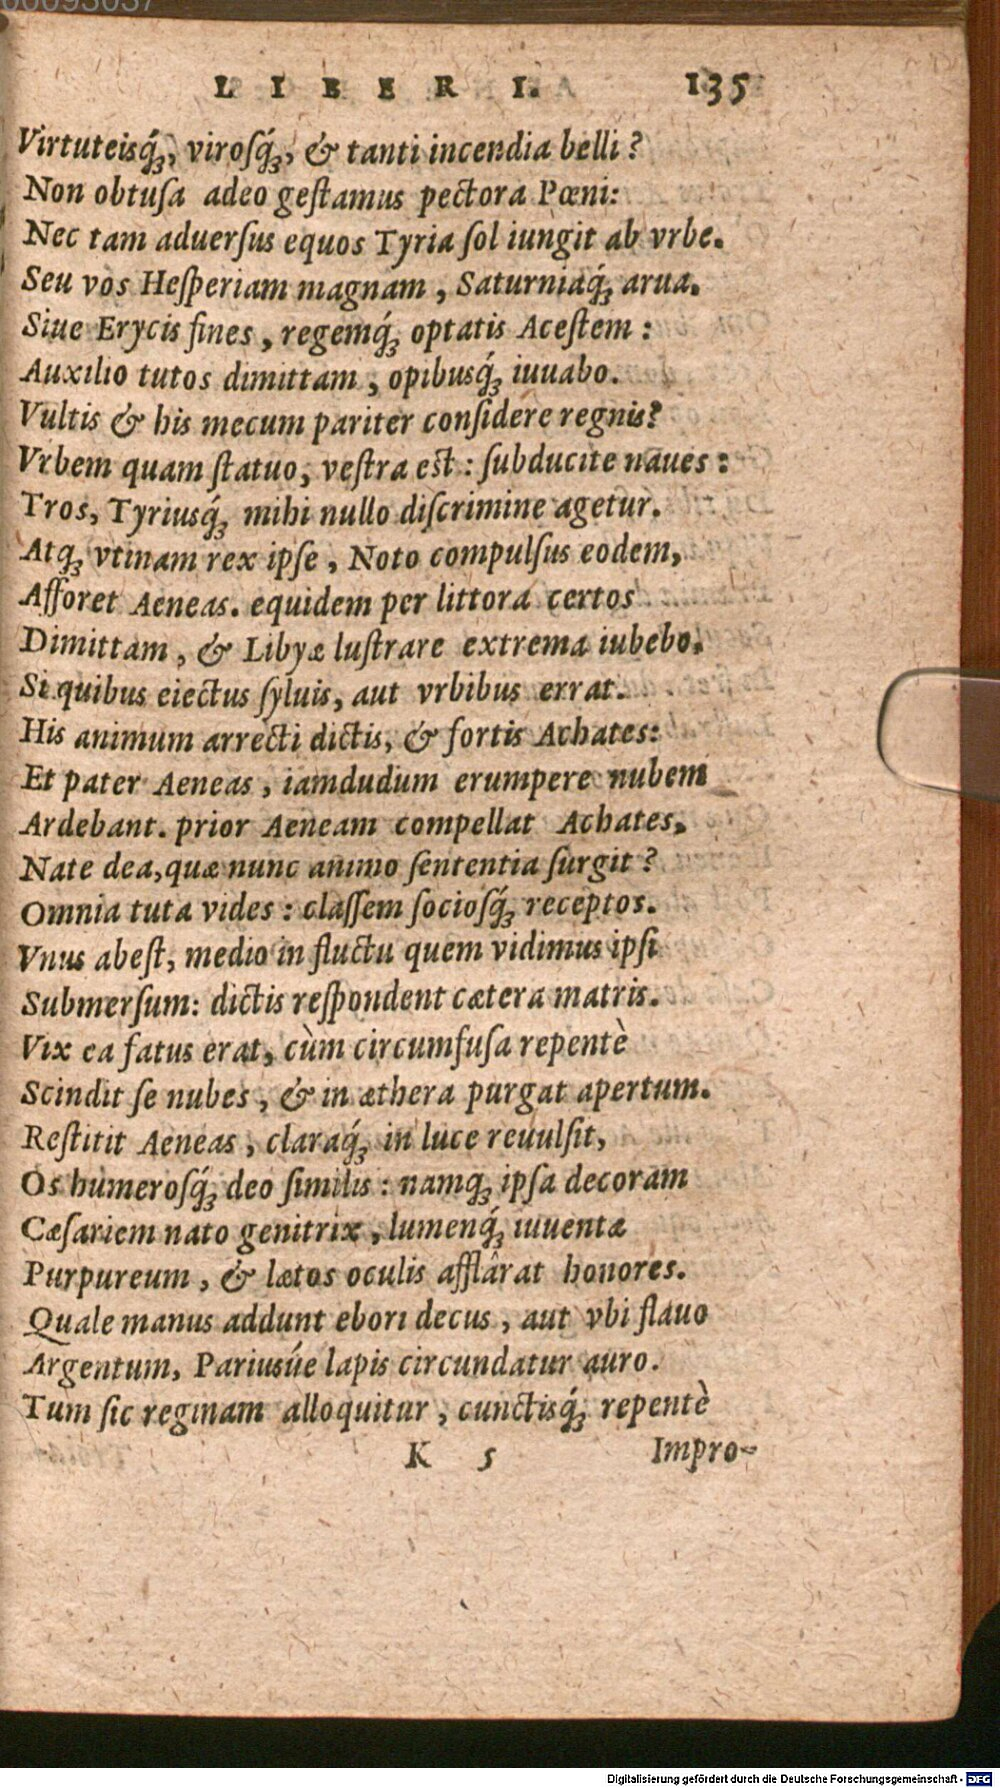 00093037
LIBER I. 135
Virtuteisq́ꝫ, viroſq́ꝫ, & tanti incendia belli?
Non obtuſa adeo geſtamus pectora Pœni:
Nec tam aduerſus equos Tyria ſol iungit ab vrbe.
Seu vos Heſperiam magnam, Saturniaq́ꝫ arua.
Siue Erycis fines, regemq́ꝫ optatis Aceſtem:
Auxilio tutos dimittam, opibusq́ꝫ iuuabo.
Vultis & his mecum pariter conſidere regnis?
Vrbem quam ſtatuo, veſtra eſt: ſubducite naues:
Tros, Tyriusq́ꝫ mihi nullo diſcrimine agetur.
Atqꝫ vtinam rex ipſe, Noto compulſus eodem,
Afforet Aeneas. equidem per littora certos
Dimittam, & Libyæ luſtrare extrema iubebo.
Si quibus eiectus ſyluis, aut vrbibus errat.
His animum arrecti dictis, & fortis Achates:
Et pater Aeneas, iamdudum erumpere nubem
Ardebant. prior Aeneam compellat Achates.
Nate dea, quæ nunc animo ſententia ſurgit?
Omnia tuta vides: claſſem ſocioſq́ꝫ receptos.
Vnus abeſt, medio in fluctu quem vidimus ipſi
Submerſum: dictis reſpondent cætera matris.
Vix ea fatus erat, cùm circumfuſa repentè
Scindit ſe nubes, & in æthera purgat apertum.
Reſtitit Aeneas, claraq́ꝫ in luce reuulſit,
Os humeroſq́ꝫ deo ſimilis: namqꝫ ipſa decoram
Cæſariem nato genitrix, lumenq́ꝫ iuuentæ
Purpureum, & lætos oculis afflârat honores.
Quale manus addunt ebori decus, aut vbi flauo
Argentum, Pariusúe lapis circundatur auro.
Tum ſic reginam alloquitur, cunctisq́ꝫ repentè
K 5 Impro-
Digitalisierung gefördert durch die Deutsche Forschungsgemeinschaft - DFG